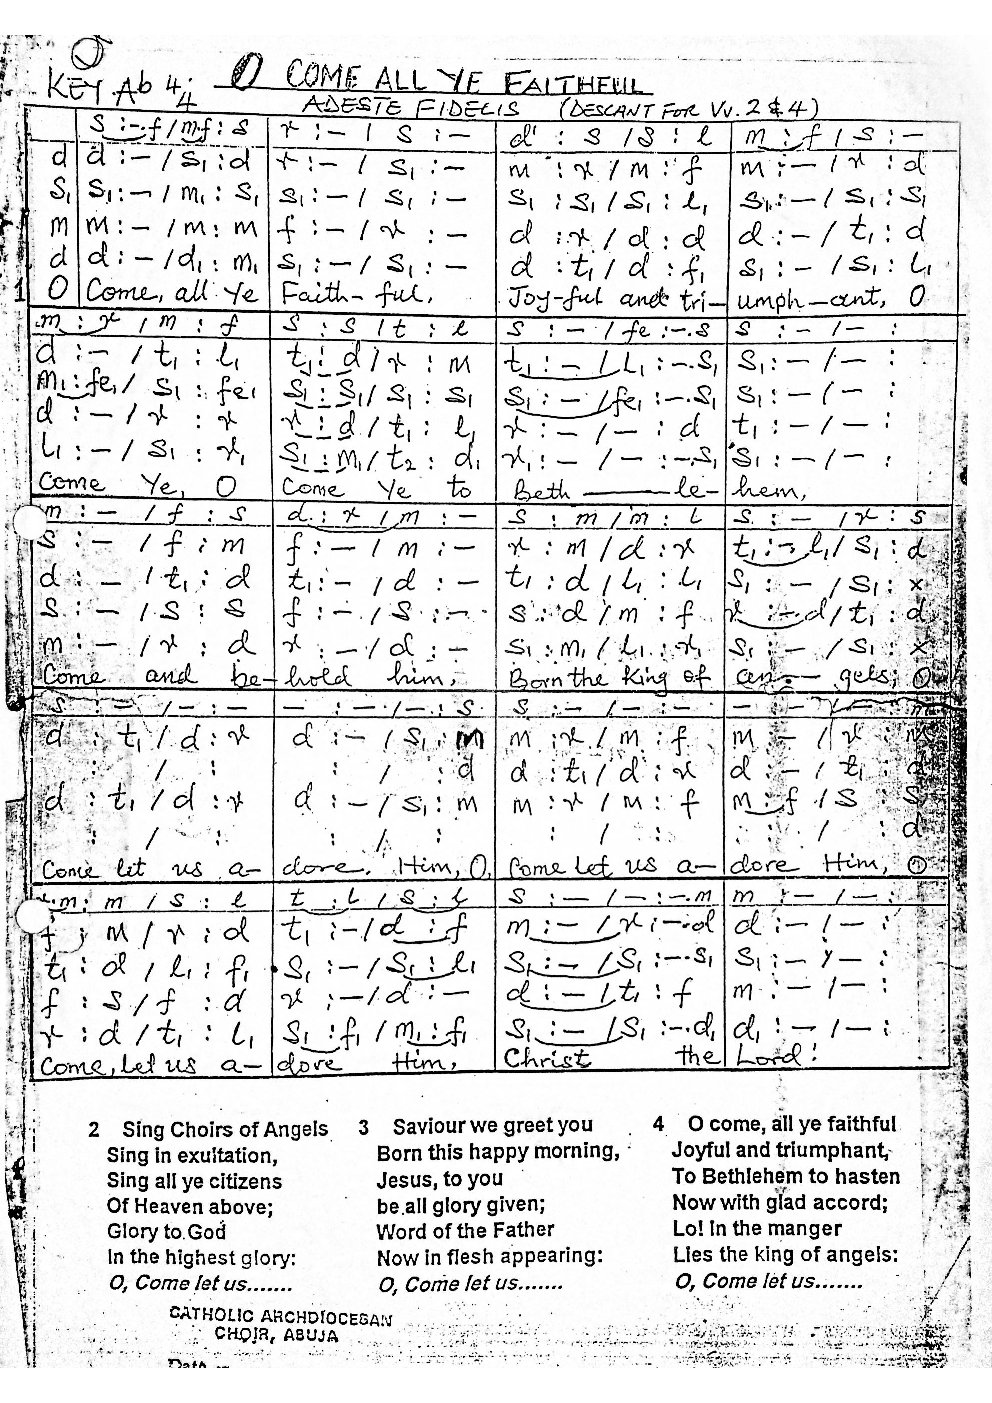 KEY Ab 4/4 O COME ALL YE FAITHFUL
ADESTE FIDELIS (DESCANT FOR Vv. 2 & 4)
s :-.f / m.f : s | r : - / s : - | d' : s / s : l | m : f / s : -
d | d : - / s₁ : d | r : - / s₁ : - | m : r / m : f | m : - / r : d
s₁ | s₁ : - / m₁ : s₁ | s₁ : - / s₁ : - | s₁ : s₁ / s₁ : l₁ | s₁ : - / s₁ : s₁
m | m : - / m : m | f : - / r : - | d : r / d : d | d : - / t₁ : d
d | d : - / d₁ : m₁ | s₁ : - / s₁ : - | d : t₁ / d : f₁ | s₁ : - / s₁ : l₁
1 O Come, all Ye Faith-ful, Joy-ful and tri- umph-ant, O
m : r / m : f | s : s / t : l | s : - / fe :-.s | s : - / - :
d : - / t₁ : l₁ | t₁ : d / r : m | t₁ : - / l₁ :-.s₁ | s₁ : - / - :
m₁ : fe₁ / s₁ : fe₁ | s₁ : s₁ / s₁ : s₁ | s₁ : - / fe₁ :-.s₁ | s₁ : - / - :
d : - / r : r | r : d / t₁ : l₁ | r : - / - : d | t₁ : - / - :
l₁ : - / s₁ : r₁ | s₁ : m₁ / t₂ : d₁ | r₁ : - / - :-.s₁ | s₁ : - / - :
Come Ye, O Come Ye to Beth——le- hem,
m : - / f : s | d : r / m : - | s : m / m : l | s : - / r : s
s : - / f : m | f : - / m : - | r : m / d : r | t₁ :-.l₁ / s₁ : d
d : - / t₁ : d | t₁ : - / d : - | t₁ : d / l₁ : l₁ | s₁ : - / s₁ : x
s : - / s : s | f : - / s : - | s : d / m : f | r :-.d / t₁ : d
m : - / r : d | r : - / d : - | s₁ : m₁ / l₁ : r₁ | s₁ : - / s₁ : x
Come and be- hold him, Born the King of an — gels; O
s : - / - : - | - : - / - : s | s : - / - : - | - - / - m
d : t₁ / d : r | d : - / s₁ : m | m : r / m : f | m - / r : m
: / : | : / : d | d : t₁ / d : r | d : - / t₁ : d
d : t₁ / d : r | d : - / s₁ : m | m : r / m : f | m : f / s s
: / : | : / : | : / : | : / : d
Come let us a- dore. Him, O, Come let us a- dore Him, O
m : m / s : l | t : l / s : l | s : - / - :-.m | m : - / - :
f : m / r : d | t₁ : - / d : f | m : - / r :-.d | d : - / - :
t₁ : d / l₁ : f₁ | s₁ : - / s₁ : l₁ | s₁ : - / s₁ :-.s₁ | s₁ : - / - :
f : s / f : d | r : - / d : - | d : - / t₁ : f | m : - / - :
r : d / t₁ : l₁ | s₁ : f₁ / m₁ : f₁ | s₁ : - / s₁ :-.d₁ | d₁ : - / - :
Come, Let us a- dore Him, Christ the Lord!
2 Sing Choirs of Angels
Sing in exultation,
Sing all ye citizens
Of Heaven above;
Glory to God
In the highest glory:
O, Come let us.......
3 Saviour we greet you
Born this happy morning,
Jesus, to you
be all glory given;
Word of the Father
Now in flesh appearing:
O, Come let us.......
4 O come, all ye faithful
Joyful and triumphant,
To Bethlehem to hasten
Now with glad accord;
Lo! In the manger
Lies the king of angels:
O, Come let us.......
CATHOLIC ARCHDIOCESAN
CHOIR, ABUJA
Date